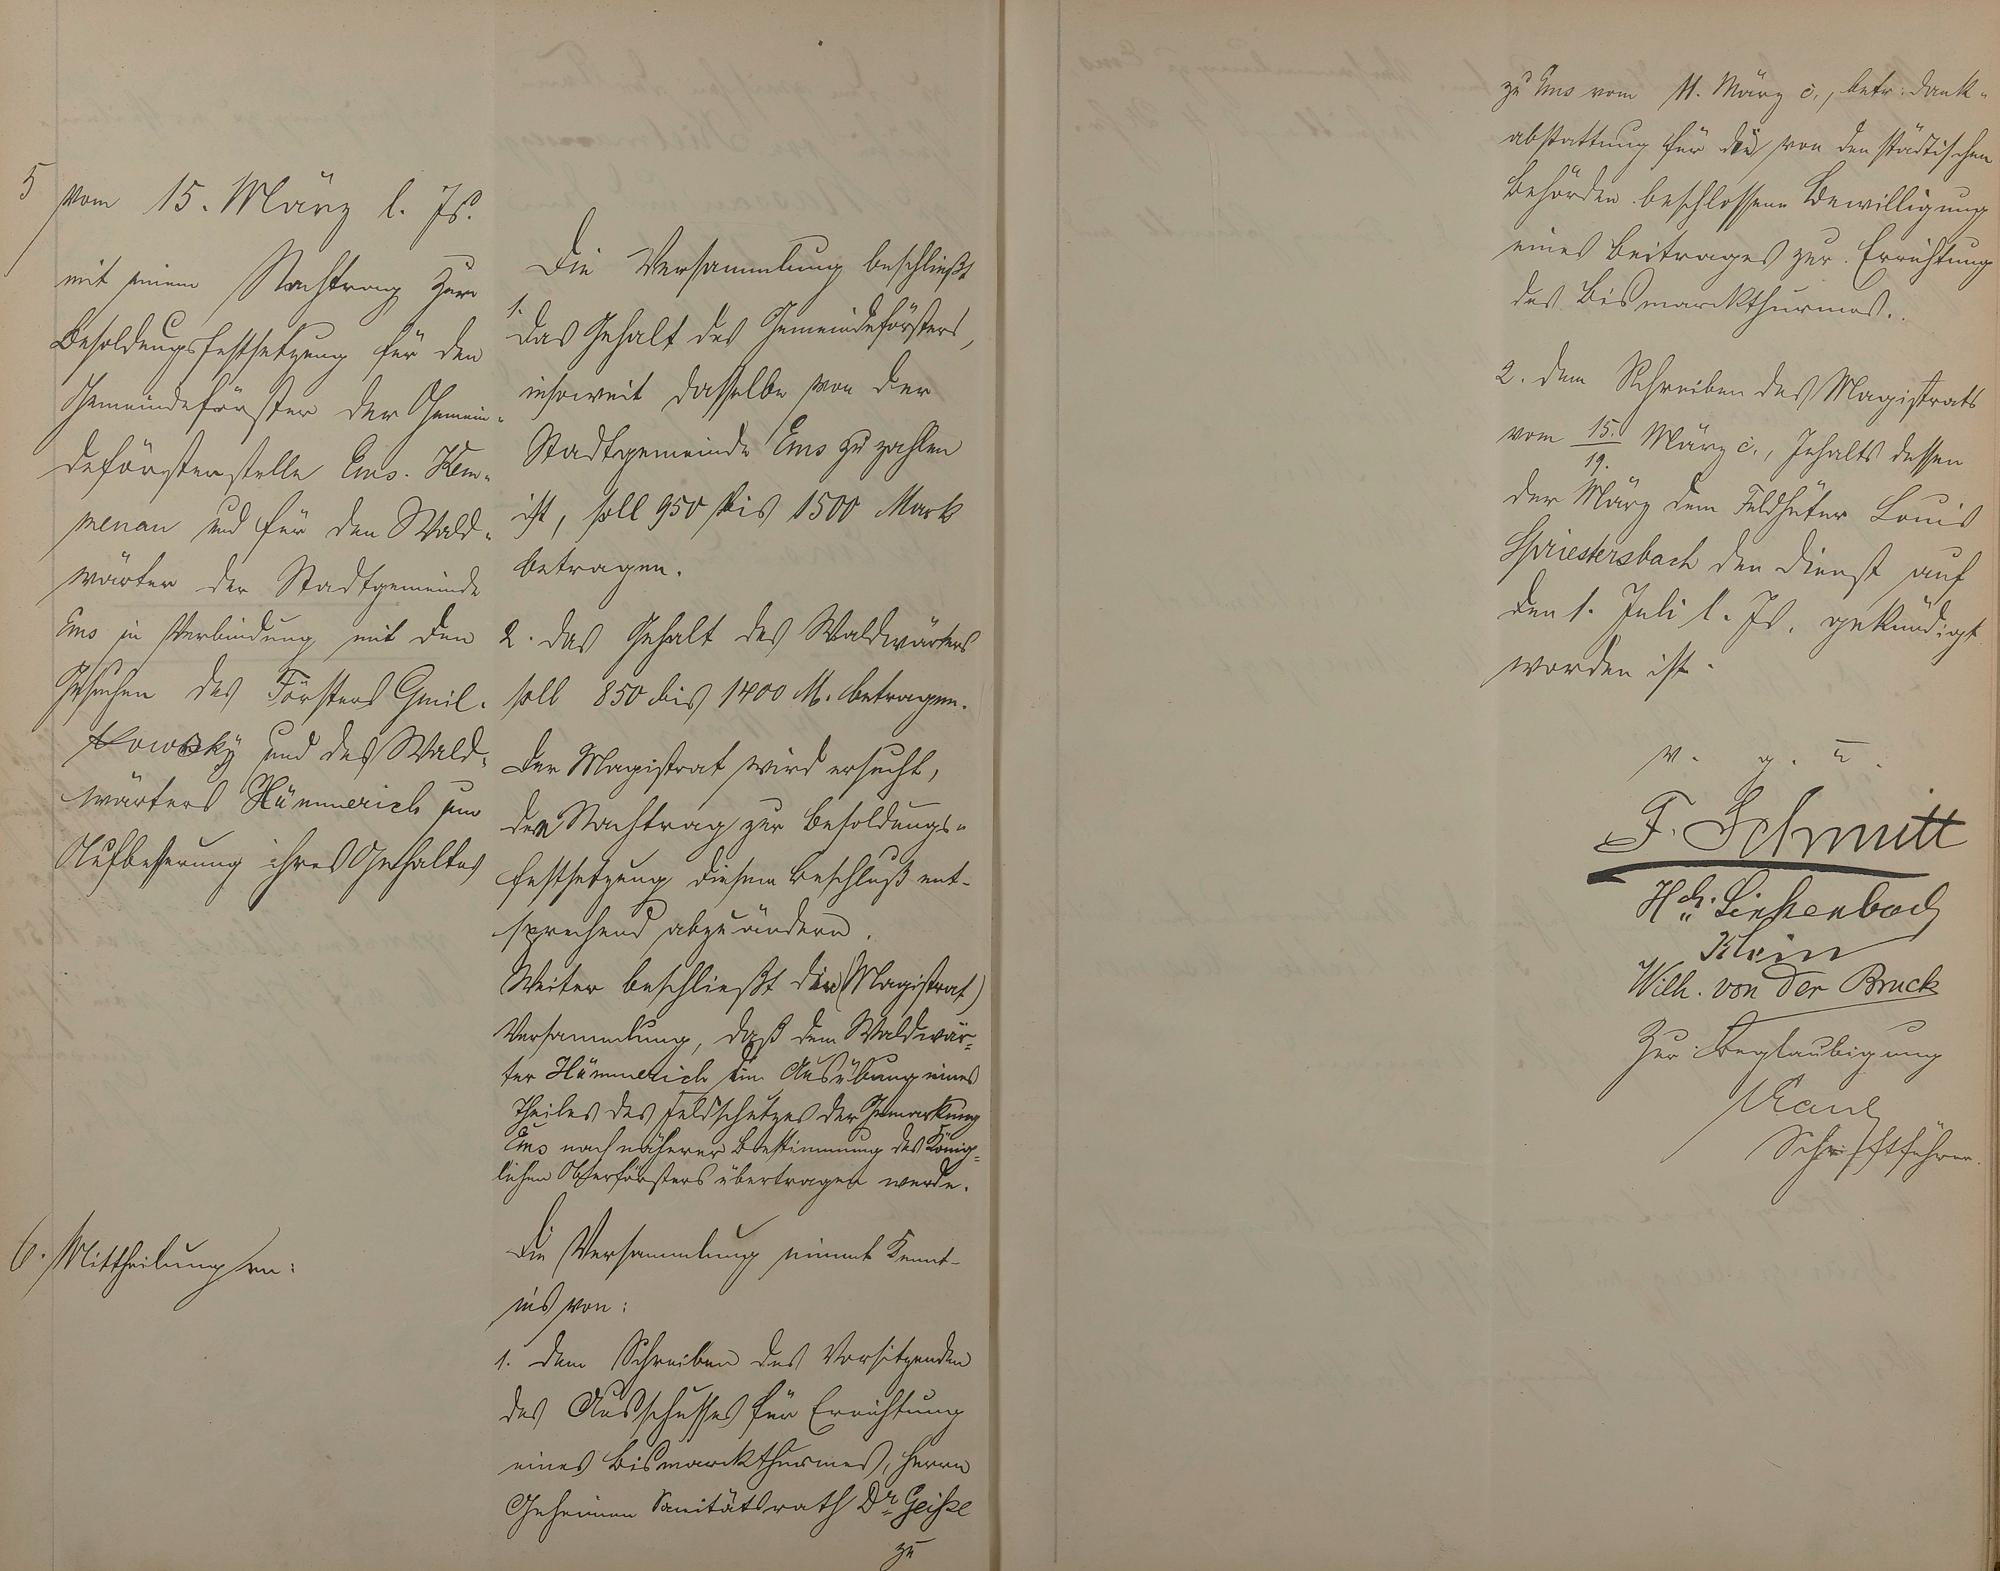 5 vom 15. März l. Js.
mit einem Nachtrag zur
Besoldungsfestsetzung für den
Gemeindeförster der Gemein-
deförsterstelle Ems-Kem-
menau und für den Wald-
wärter der Stadtgemeinde
Ems in Verbindung mit den
Gesuchen des Försters Gmil-
kowsky und des Wald-
wärters Hümmerich um
Aufbesserung ihres Gehaltes
Die Versammlung beschließt
1.
das Gehalt des Gemeindeförsters,
insoweit dasselbe von der
Stadtgemeinde Ems zu zahlen
ist, soll 950 bis 1500 Mark
betragen.
2. das Gehalt des Waldwärters
soll 850 bis 1400 M. betragen.
Der Magistrat wird ersucht,
den Nachtrag zur Besoldungs-
festsetzung diesem Beschluß ent-
sprechend abzuändern.
Weiter beschließt die (Magistrat)
Versammlung, daß dem Waldwär-
ter Hümmerich die Ausübung eines
Theiles des Feldschutzes der Gemarkung
Ems nach näherer Bestimmung des König-
lichen Oberförsters übertragen werde.
6. Mittheilungen:
Die Versammlung nimmt Kennt-
nis von:
1. dem Schreiben des Vorsitzenden
des Ausschusses für Errichtung
eines Bismarckthurmes, Herrn
Geheimen Sanitätsrath Dr. Geiße
zu
zu Ems vom 11. März c., betr. Dank-
abstattung für die von den städtischen
Behörden beschlossene Bewilligung
eines Beitrages zur Errichtung
des Bismarckthurmes.
2. dem Schreiben des Magistrats
vom 15./19. März c., Inhalts dessen
der März dem Feldhüter Louis
Spriestersbach den Dienst auf
den 1. Juli l. Js. gekündigt
worden ist.
v. g. u.
F. Schmitt
Hch. Linkenbach
Klein
Wilh. von der Bruck
Zur Beglaubigung
Schriftführer.